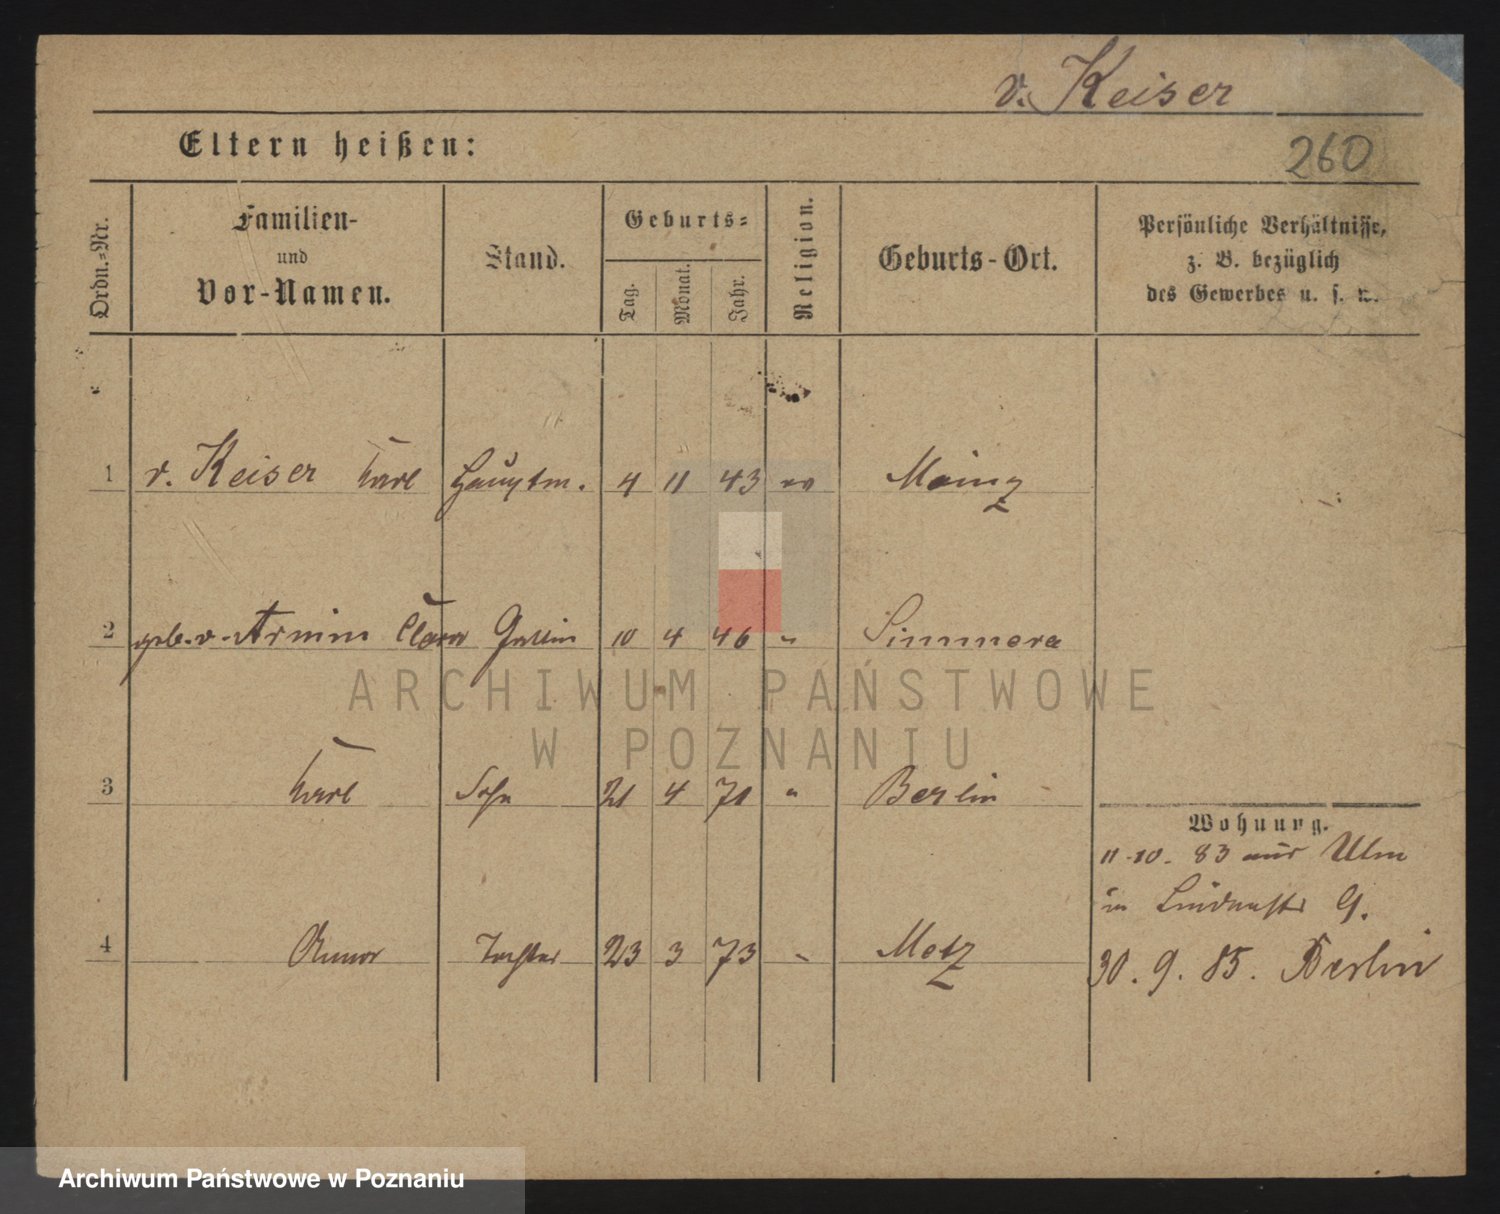 v. Keiser
Eltern heißen:
260
Ordn.-Nr.
Familien-
und
Vor-Namen.
Stand.
Geburts-
Tag.
Monat.
Jahr.
Religion.
Geburts-Ort.
Persönliche Verhältnisse,
z. B. bezüglich
des Gewerbes u. s. w.
1 v. Keiser Karl Hauptm. 4 11 43 ev Mainz
2 geb. v. Arnim Clara Gattin 10 4 46 " Simmern
3 Karl Sohn 21 4 71 " Berlin
Wohnung.
11.10. 83 aus Ulm
in Lindenstr 9.
4 Tochter 23 3 73 " Metz
30. 9. 85. Berlin
ARCHIWUM PAŃSTWOWE
W POZNANIU
Archiwum Państwowe w Poznaniu